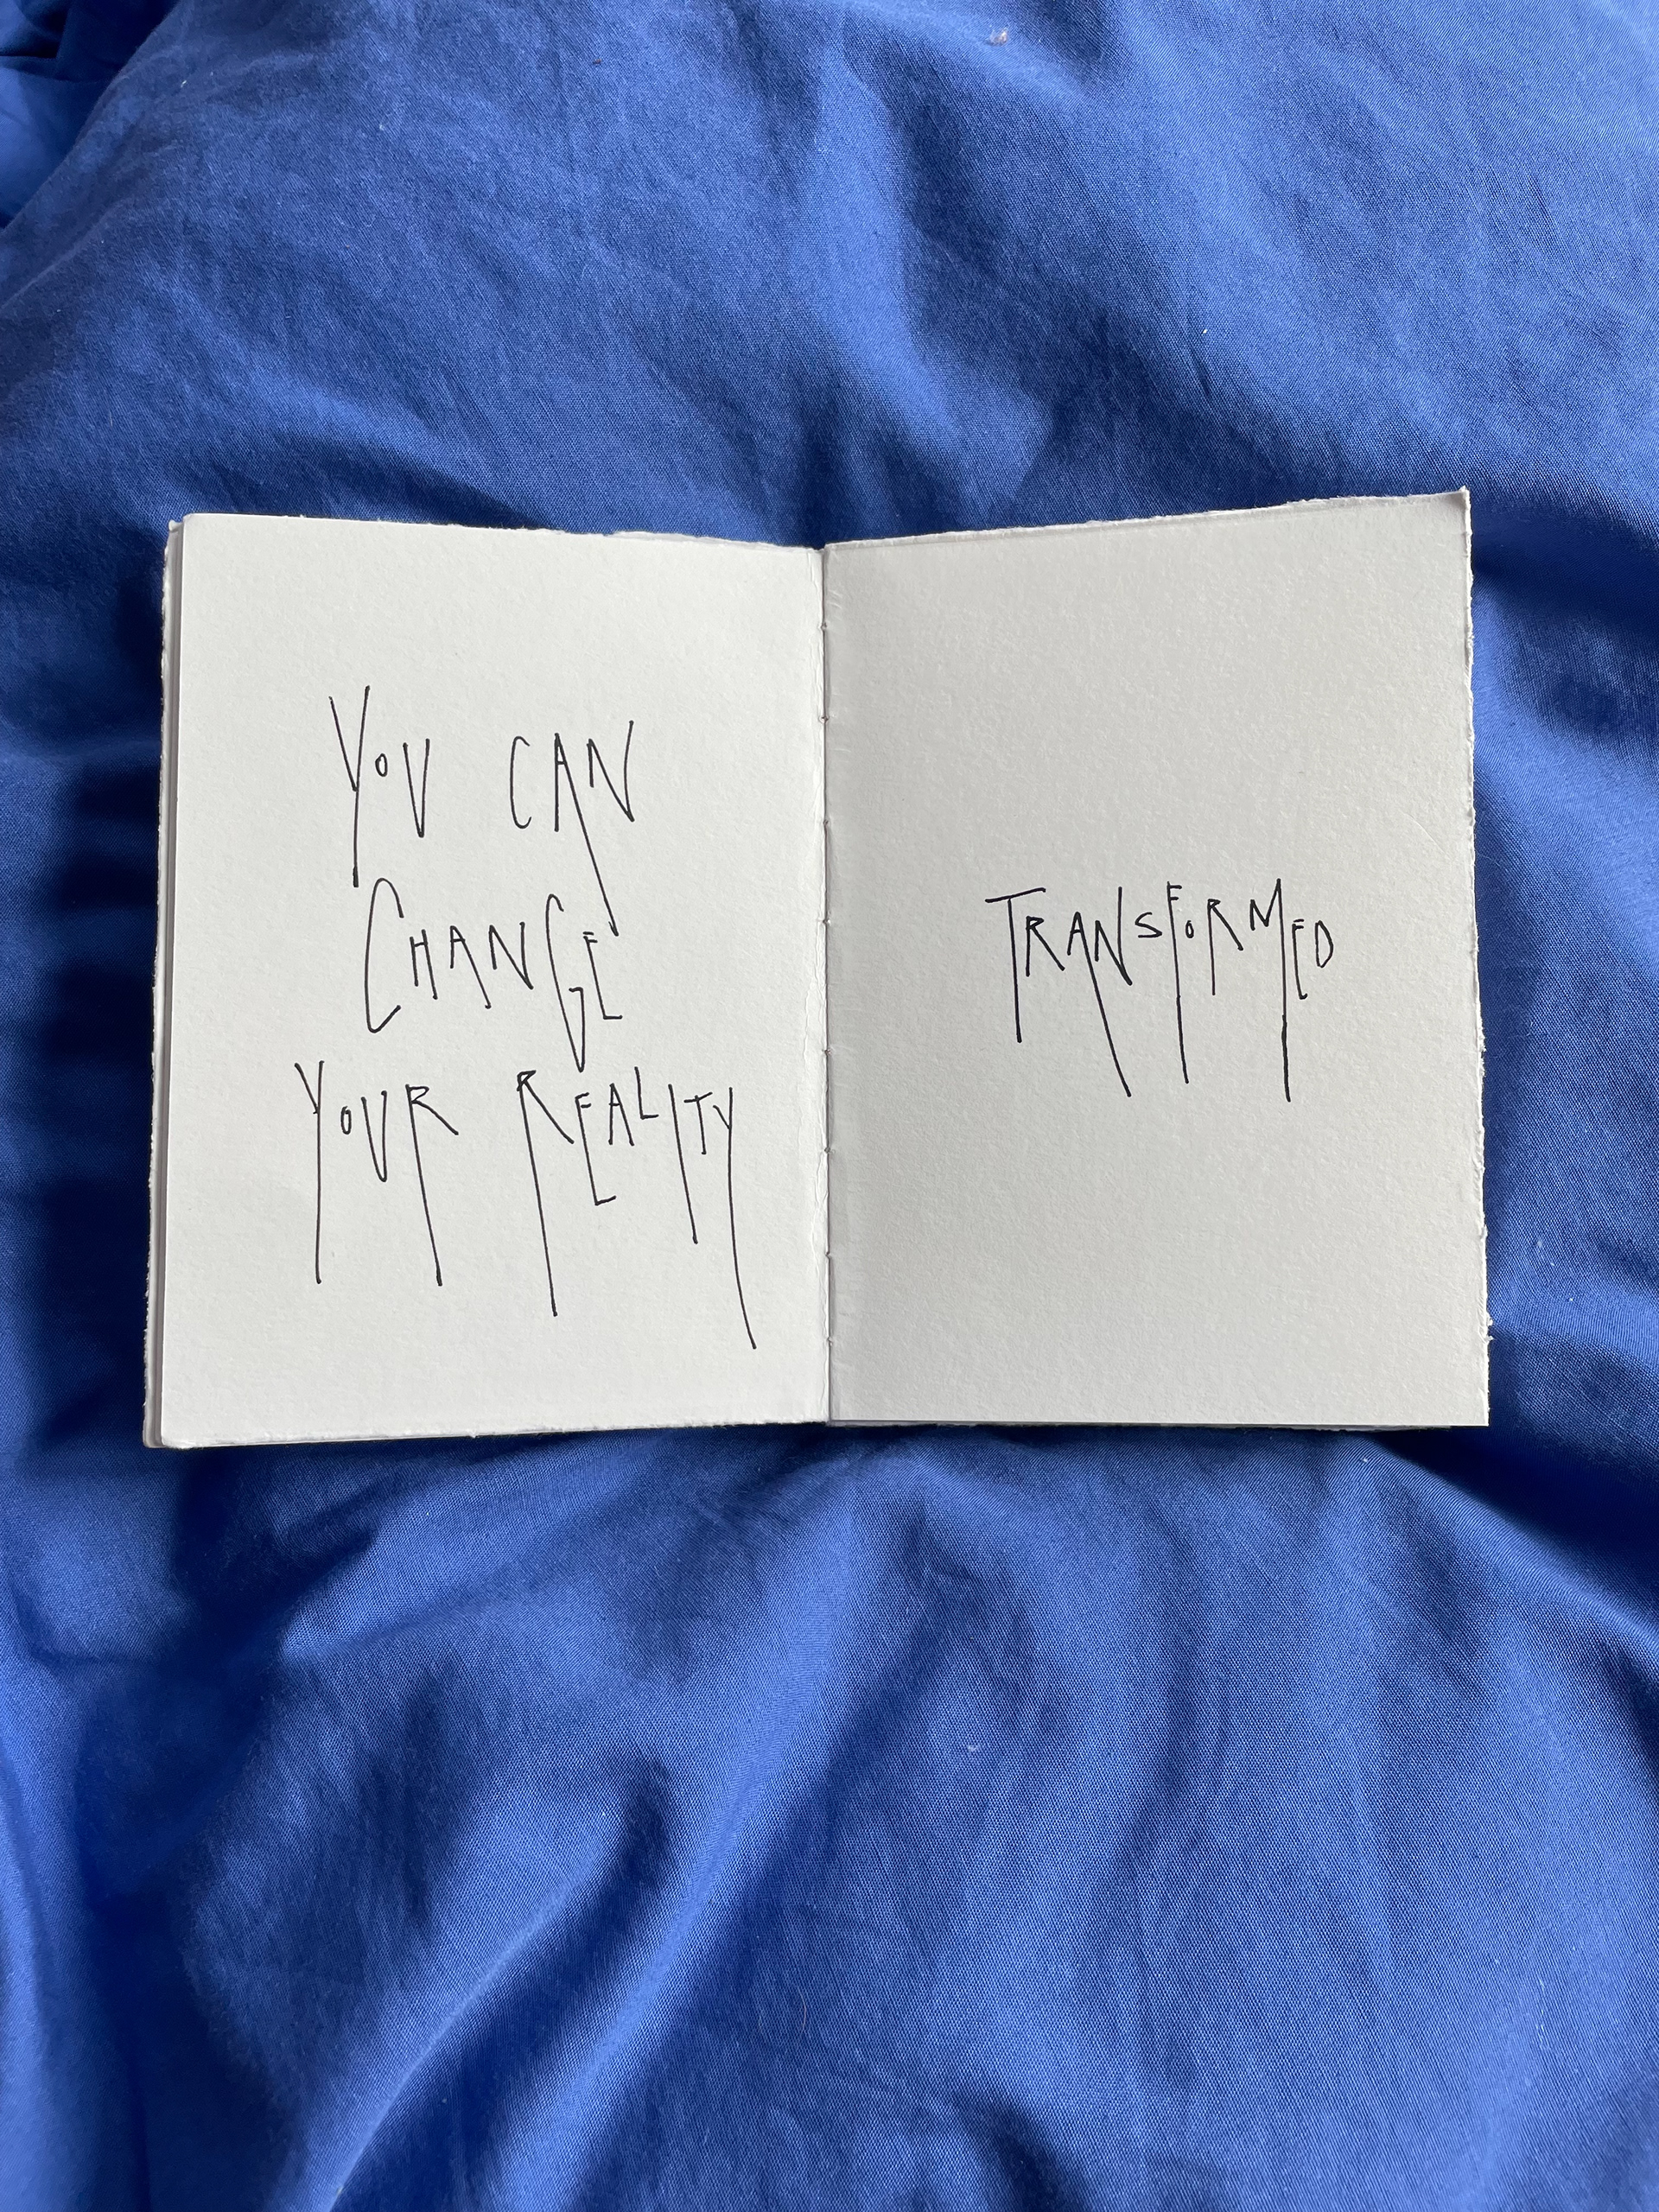 YOU CAN
CHANGE
YOUR REALITY
TRANSFORMED